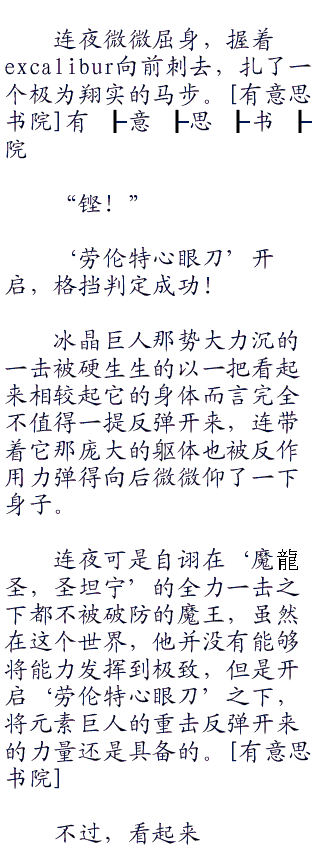 连夜微微屈身，握着
excalibur向前刺去，扎了一
个极为翔实的马步。[有意思
书院]有 ┣意 ┣思 ┣书 ┣
院
“铿！”
‘劳伦特心眼刀’开
启，格挡判定成功！
冰晶巨人那势大力沉的
一击被硬生生的以一把看起
来相较起它的身体而言完全
不值得一提反弹开来，连带
着它那庞大的躯体也被反作
用力弹得向后微微仰了一下
身子。
连夜可是自诩在‘魔龍
圣，圣坦宁’的全力一击之
下都不被破防的魔王，虽然
在这个世界，他并没有能够
将能力发挥到极致，但是开
启‘劳伦特心眼刀’之下，
将元素巨人的重击反弹开来
的力量还是具备的。[有意思
书院]
不过，看起来